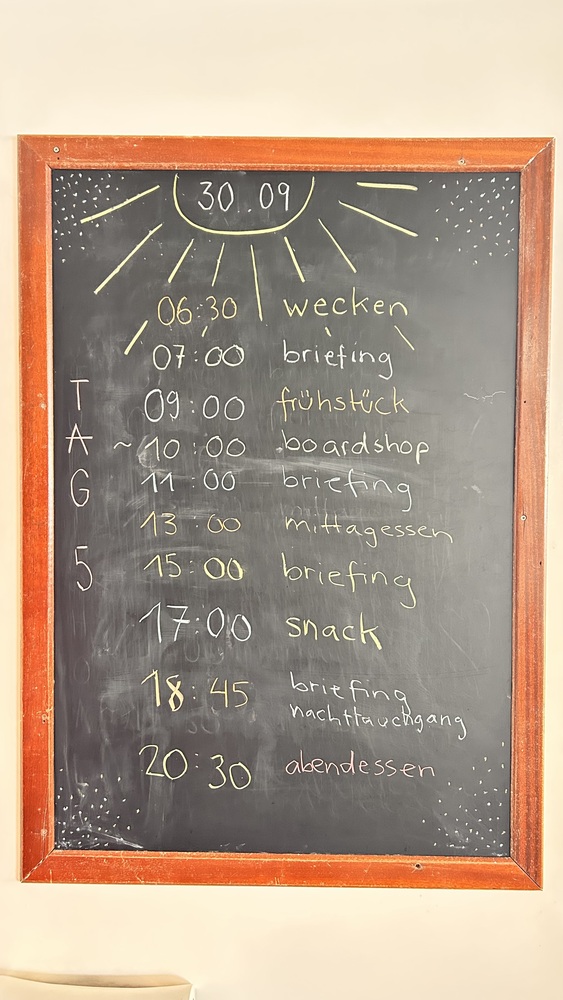 30.09
06:30 wecken
07:00 briefing
09:00 frühstück
~10:00 boardshop
11:00 briefing
13:00 mittagessen
15:00 briefing
17:00 snack
18:45 briefing
nachttauchgang
20:30 abendessen
TAG 5